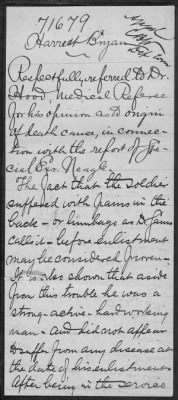 71679
Harriet Bryan
Respectfully, referred to Dr.
Hood, Medical Referee
for his opinion as to origin
of death cause, in connec
tion with the report of Spe
cial Ex. Neagle.
The fact that the soldier
suffered with pains in the
back - or lumbago as Dr.
calls it - before enlistment
may be considered proven -
It is also shown that aside
from this trouble he was a
strong - active - hard working
man - and did not appear
to suffer from any disease at
the date of his enlistment
After being in the service